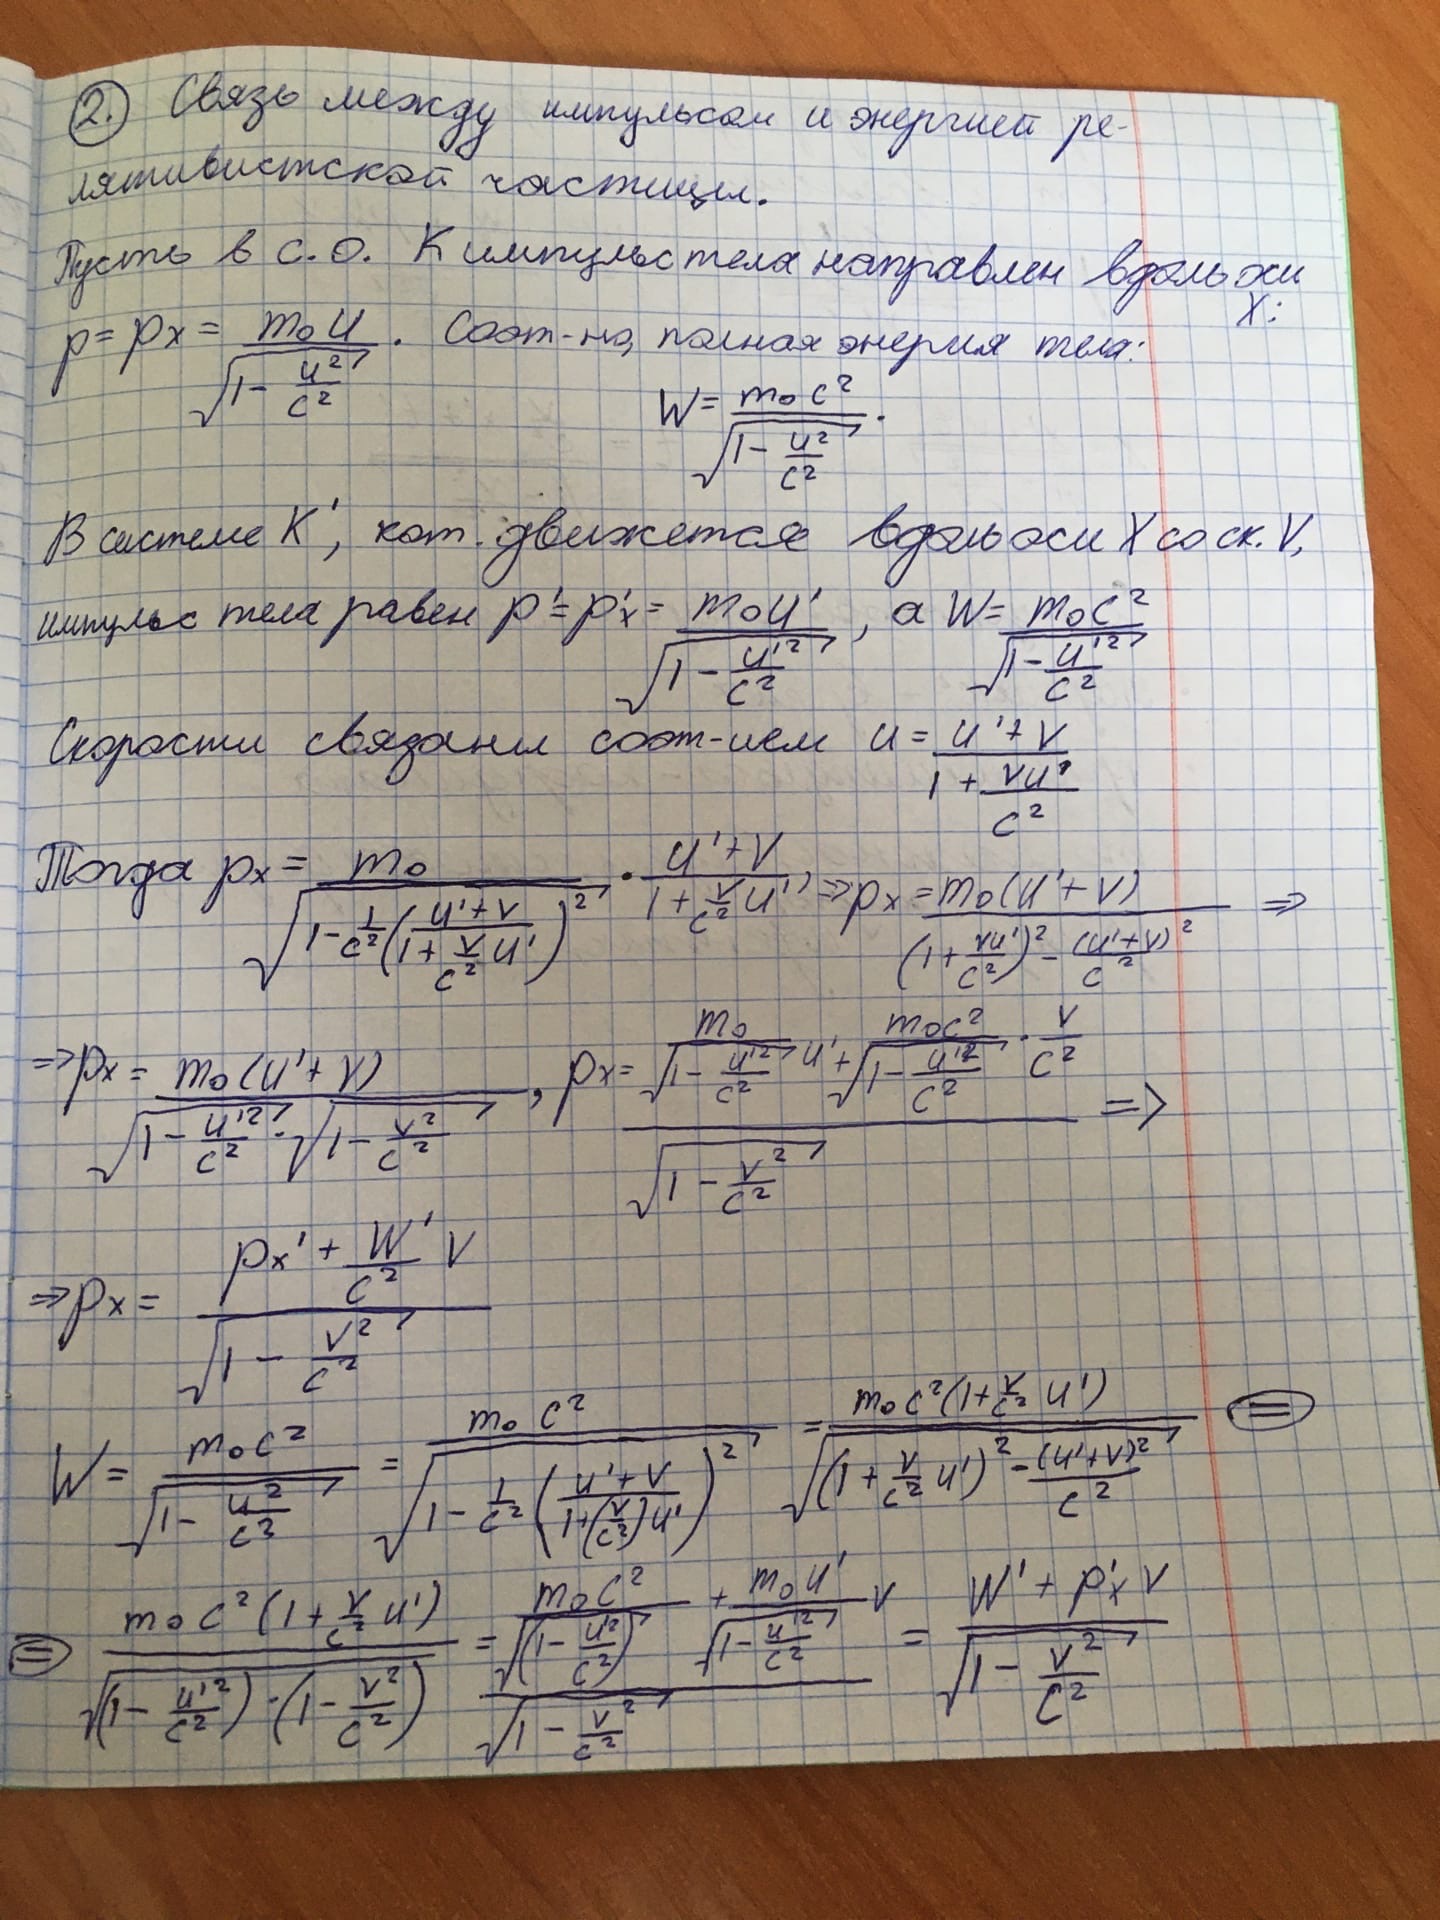 2. Связь между импульсом и энергией ре-
лятивистской частицы.
Пусть в С.О. K импульс тела направлен вдоль оси
X:
p = px = m₀U / √(1 - U²/c²). Соот-но, полная энергия тела:
W = m₀c² / √(1 - U²/c²).
В системе K', кот. движется вдоль оси X со ск. V,
импульс тела равен p' = p'x = m₀U' / √(1 - U'²/c²), а W = m₀c² / √(1 - U'²/c²)
Скорости связаны соот-ием U = (U' + V) / (1 + VU'/c²)
Тогда px = m₀ / √(1 - 1/c² ((U' + V) / (1 + V/c² U'))²) · (U' + V) / (1 + V/c² U') ⇒ px = m₀(U' + V) / ((1 + VU'/c²)² - (U' + V)²/c²) ⇒
⇒ px = m₀(U' + V) / (√(1 - U'²/c²) · √(1 - V²/c²)), px = (m₀ / √(1 - U'²/c²) U' + m₀c² / √(1 - U'²/c²) · V/c²) / √(1 - V²/c²) ⇒
⇒ px = (px' + W'/c² V) / √(1 - V²/c²)
W = m₀c² / √(1 - U²/c²) = m₀c² / √(1 - 1/c² ((U' + V) / (1 + (V/c²)U'))²) = m₀c²(1 + V/c² U') / √((1 + V/c² U')² - (U' + V)²/c²) =
= m₀c²(1 + V/c² U') / √((1 - U'²/c²) · (1 - V²/c²)) = (m₀c² / √(1 - U'²/c²) + m₀U' / √(1 - U'²/c²) V) / √(1 - V²/c²) = (W' + p'x V) / √(1 - V²/c²)